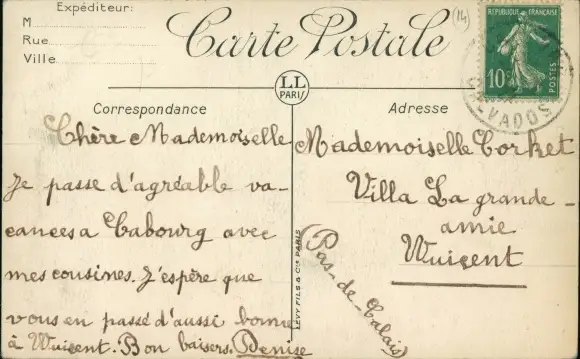 Expéditeur:
M
Rue
Ville
Carte Postale
(14)
REPUBLIQUE FRANÇAISE
10c
POSTES
CALVADOS
LL
PARIS
Correspondance
Adresse
Chère Mademoiselle
Je passe d'agréable va-
cances a Cabourg avec
mes cousines. J'espère que
vous en passé d'aussi bonne
à Wuisent. Bon baisers. Denise
LEVY FILS & Cie PARIS
Mademoiselle Corket
Villa La grande-
amie
Wuisent
(Pas-de-Calais)